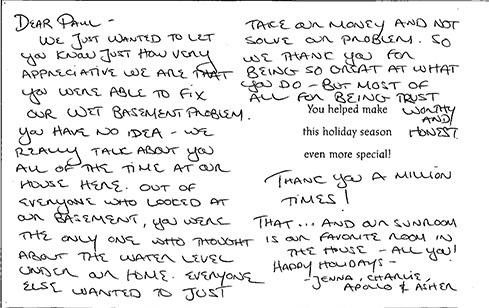 DEAR PAUL -
WE JUST WANTED TO LET
YOU KNOW JUST HOW VERY
APPRECIATIVE WE ARE THAT
YOU WERE ABLE TO FIX
OUR WET BASEMENT PROBLEM.
YOU HAVE NO IDEA - WE
REALLY TALK ABOUT YOU
ALL OF THE TIME AT OUR
HOUSE HERE. OUT OF
EVERYONE WHO LOOKED AT
OUR BASEMENT, YOU WERE
THE ONLY ONE WHO THOUGHT
ABOUT THE WATER LEVEL
UNDER OUR HOME. EVERYONE
ELSE WANTED TO JUST
TAKE OUR MONEY AND NOT
SOLVE OUR PROBLEM. SO
WE THANK YOU FOR
BEING SO GREAT AT WHAT
YOU DO - BUT MOST OF
ALL FOR BEING TRUST
WORTHY
AND
HONEST.
You helped make
this holiday season
even more special!
THANK YOU A MILLION
TIMES!
THAT... AND OUR SUNROOM
IS OUR FAVORITE ROOM IN
THE HOUSE - ALL YOU!
HAPPY HOLIDAYS -
- JENNA, CHARLIE,
APOLLO & ASHER